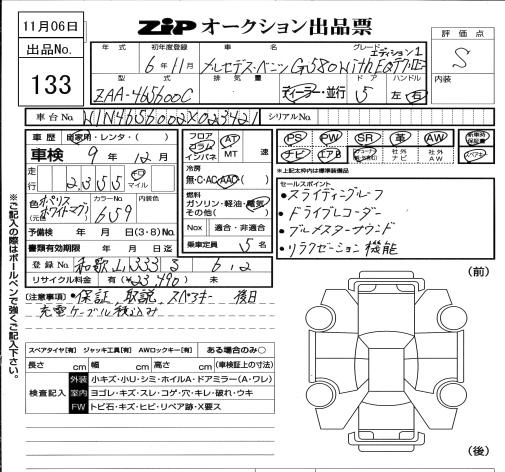 11月06日
ZiP オークション出品票
評価点
S
内装
出品No.
133
年式 初年度登録 車名 グレード
6年11月 メルセデス・ベンツ G580 With EQ テクノロジー エディション1
型式 排気量 ドア ハンドル
ZAA-465600C ディーラー・並行 5 左・右
車台No. W1N4656002X023421 シリアルNo.
車歴 自家用・レンタ・( )
車検 9年12月
走行 2355 km マイル
色 オパリスホワイトマグノ (元色 カラーNo. 659 内装色
予備検 年 月 日(3・8)No.
書類有効期限 年 月 日迄
登録No. 和歌山 333 る 6 12
リサイクル料金 有(¥23,490) 未
フロア コラム インパネ AT MT 速
冷房 無・C・AC・AAC( )
燃料 ガソリン・軽油・電気 その他( )
Nox 適合・非適合
乗車定員 5名
PS PW SR 革 AW 新車時保証書
ナビ エアB 社外ナビ 社外AW スペアキー
*上記太枠内は標準装備品
セールスポイント
・スライディングルーフ
・ドライブレコーダー
・ブルメスターサウンド
・リラクゼーション機能
(注意事項)・保証、取説、スペアキー 後日
充電ケーブル積込み
スペアタイヤ[有] ジャッキ工具[有] AWロックキー[有] ある場合のみ○
長さ cm 幅 cm 高さ cm (車検証上の寸法)
検査記入
外装 小キズ・小U・シミ・ホイルA・ドアミラー(A・ワレ)
室内 ヨゴレ・キズ・スレ・コゲ・穴・キレ・破れ・ウキ
FW トビ石・キズ・ヒビ・リペア跡・X要ス
(前)
(後)
※ご記入の際はボールペンで強くご記入下さい。